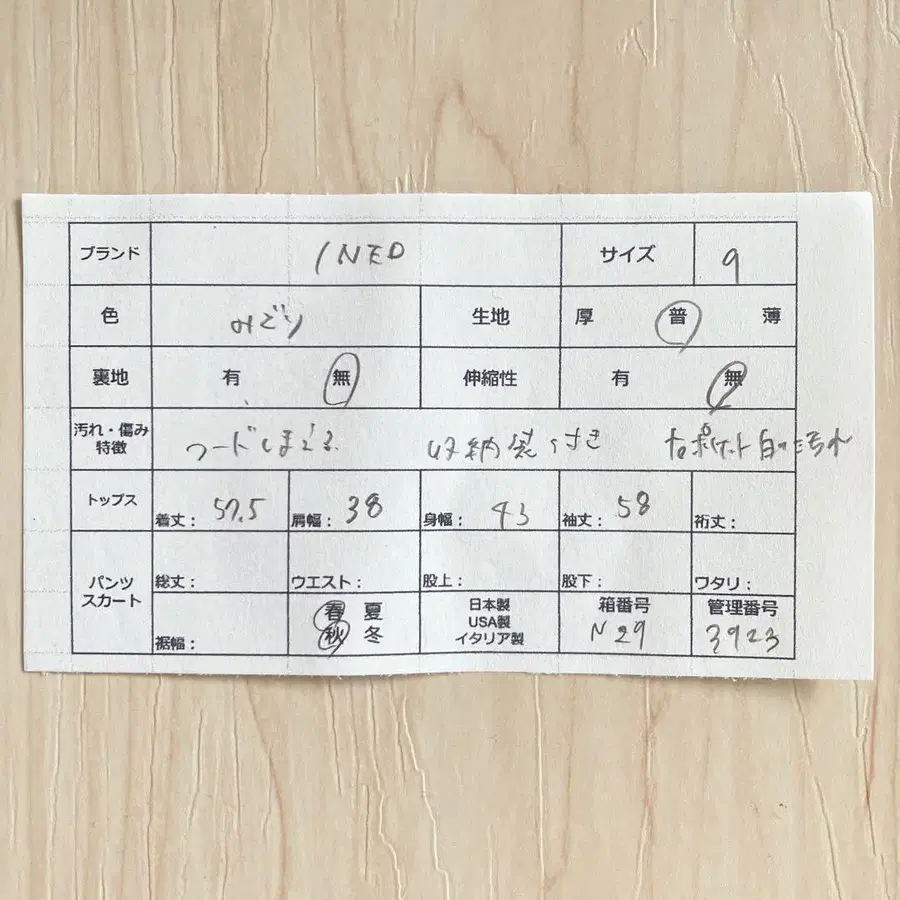 ブランド INED サイズ 9
色 みどり 生地 厚 普 薄
裏地 有 無 伸縮性 有 無
汚れ・傷み
特徴 フードしまえる 収納袋付き 右ポケット白い汚れ
トップス 着丈: 57.5 肩幅: 38 身幅: 43 袖丈: 58 裄丈:
パンツ
スカート 総丈: ウエスト: 股上: 股下: ワタリ:
裾幅: 春 夏
秋 冬
日本製
USA製
イタリア製
箱番号
N29
管理番号
3923